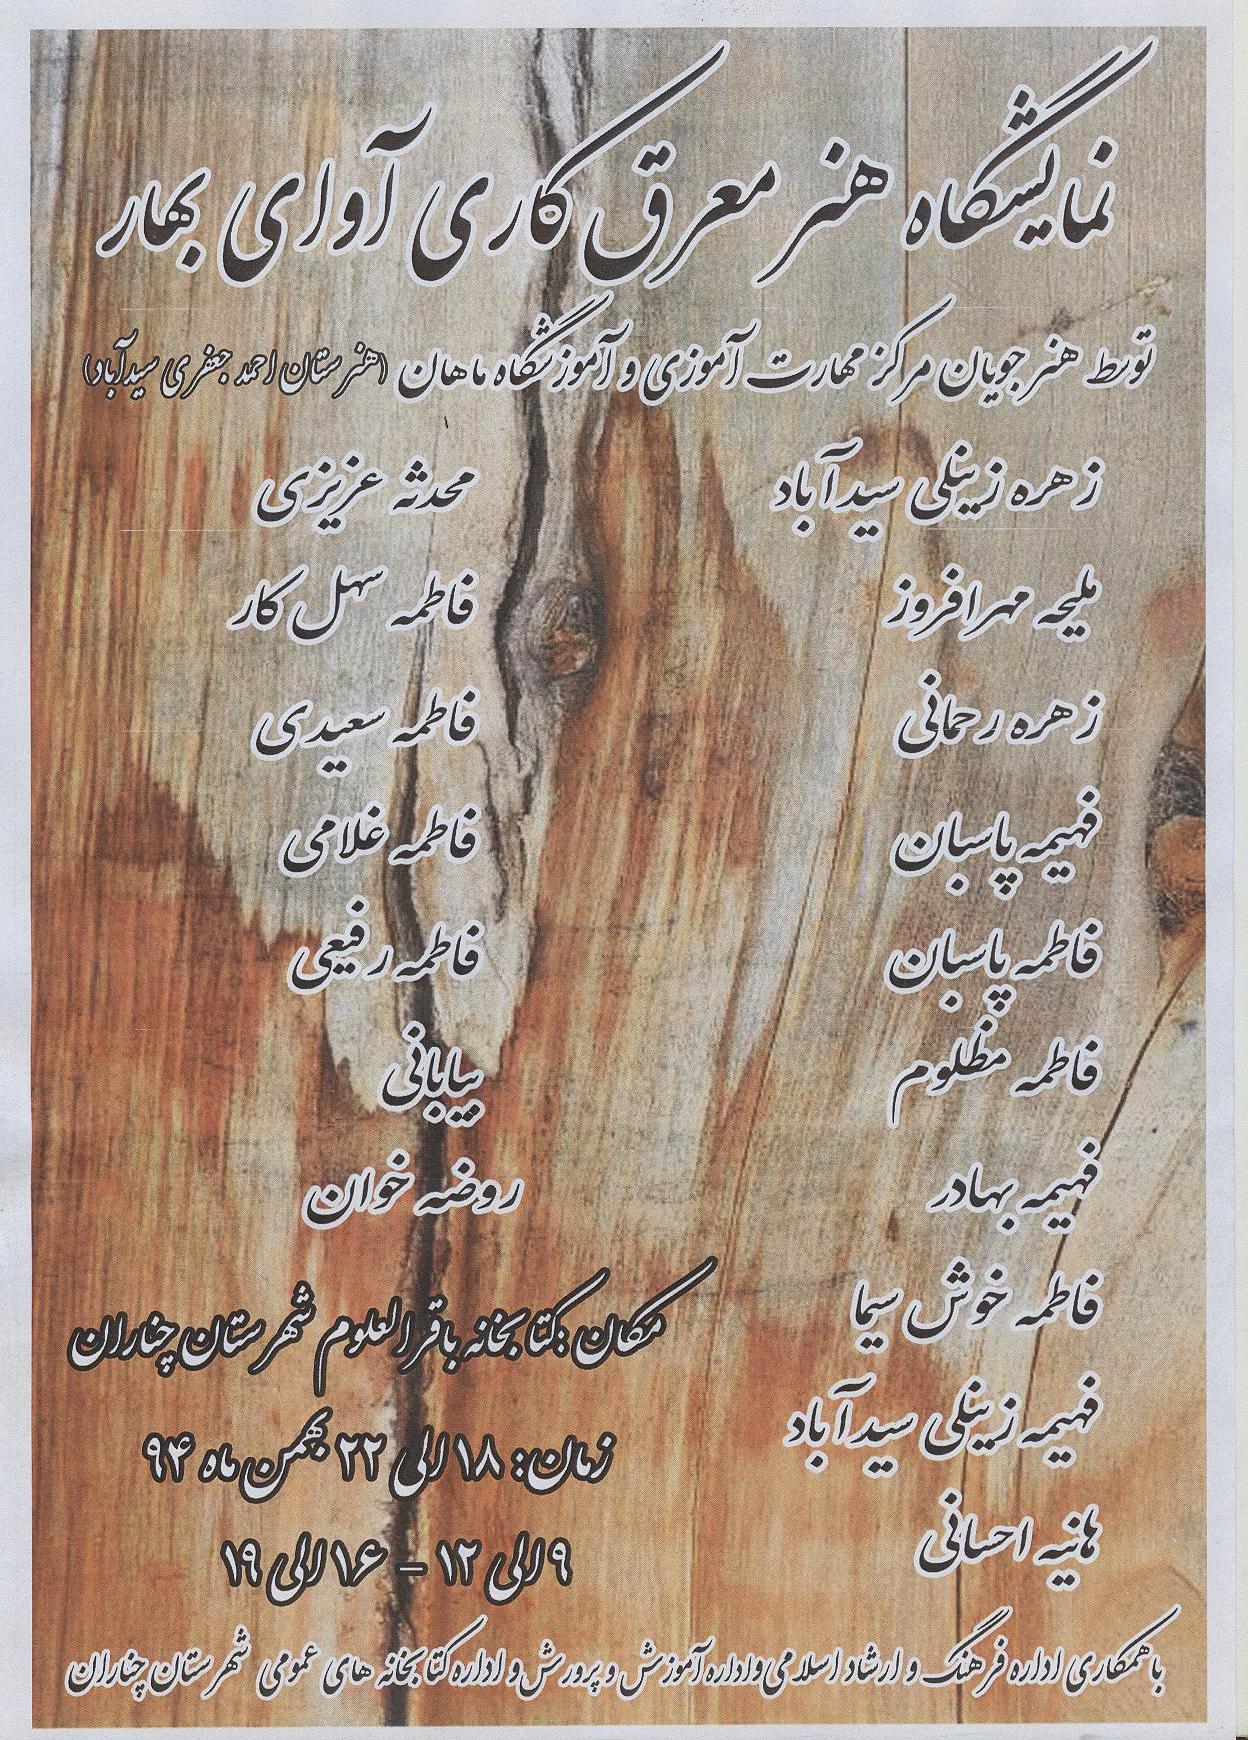 نمایشگاه هنر معرق کاری آوای بهار
توسط هنرجویان مرکز مهارت آموزی و آموزشگاه ماهان (هنرستان احمد جعفری سیدآباد)
زهره زینلی سیدآباد
ملیحه مهرافروز
زهره رحمانی
فهیمه پاسبان
فاطمه پاسبان
فاطمه مظلوم
فهیمه بهادر
فاطمه خوش سیما
فهیمه زینلی سیدآباد
هانیه احسانی
محدثه عزیزی
فاطمه سهل کار
فاطمه سعیدی
فاطمه غلامی
فاطمه رفیعی
بیابانی
روضه خوان
مکان: کتابخانه باقرالعلوم شهرستان چناران
زمان: ۱۸ الی ۲۲ بهمن ماه ۹۴
۹ الی ۱۲ - ۱۶ الی ۱۹
با همکاری اداره فرهنگ و ارشاد اسلامی و اداره آموزش و پرورش و اداره کتابخانه های عمومی شهرستان چناران